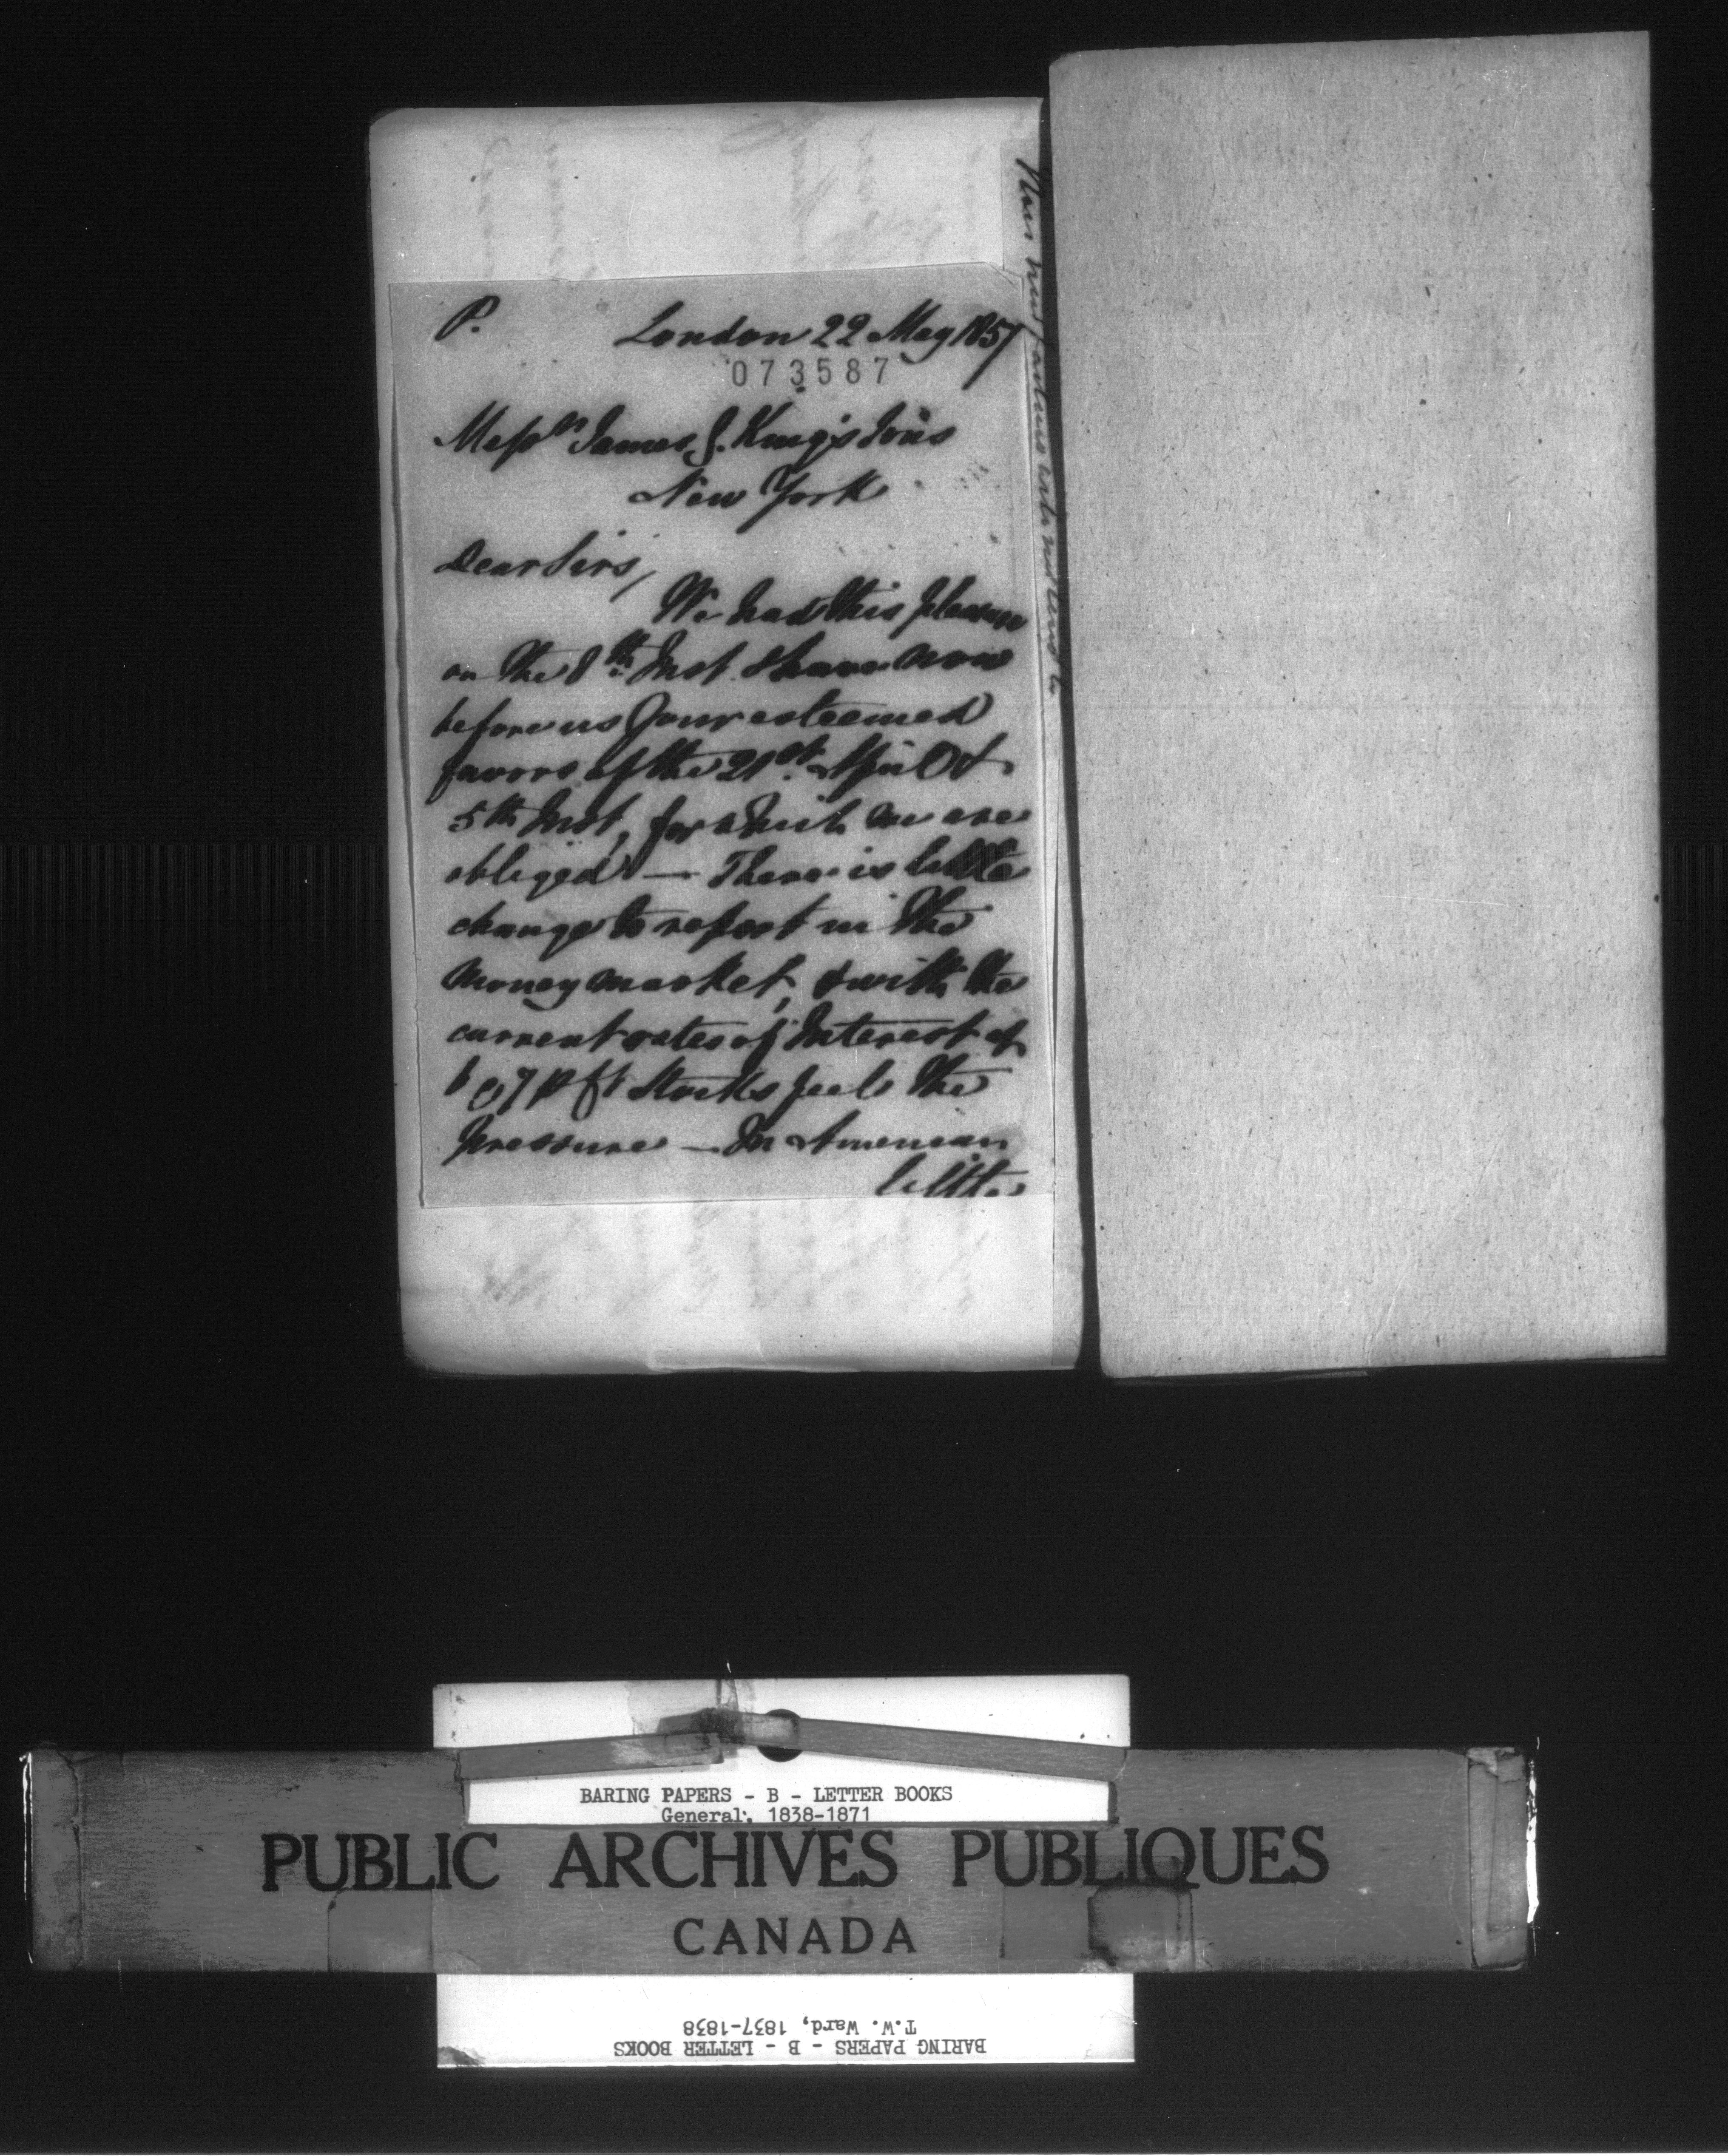 P. London 22 May 1857
073587
Messrs James G. King's Sons
New York
Dear Sirs,
We had this pleasure
on the 8th Inst. & have now
before us your esteemed
favors of the 21st April &
5th Inst, for which we are
obliged — There is little
change to report in the
money market, & with the
current rates of Interest of
6 @ 7 p Ct Stocks feel the
pressure — In American
little
BARING PAPERS - B - LETTER BOOKS
General, 1838-1871
PUBLIC ARCHIVES PUBLIQUES
CANADA
T.W. Ward, 1837-1838
BARING PAPERS - B - LETTER BOOKS